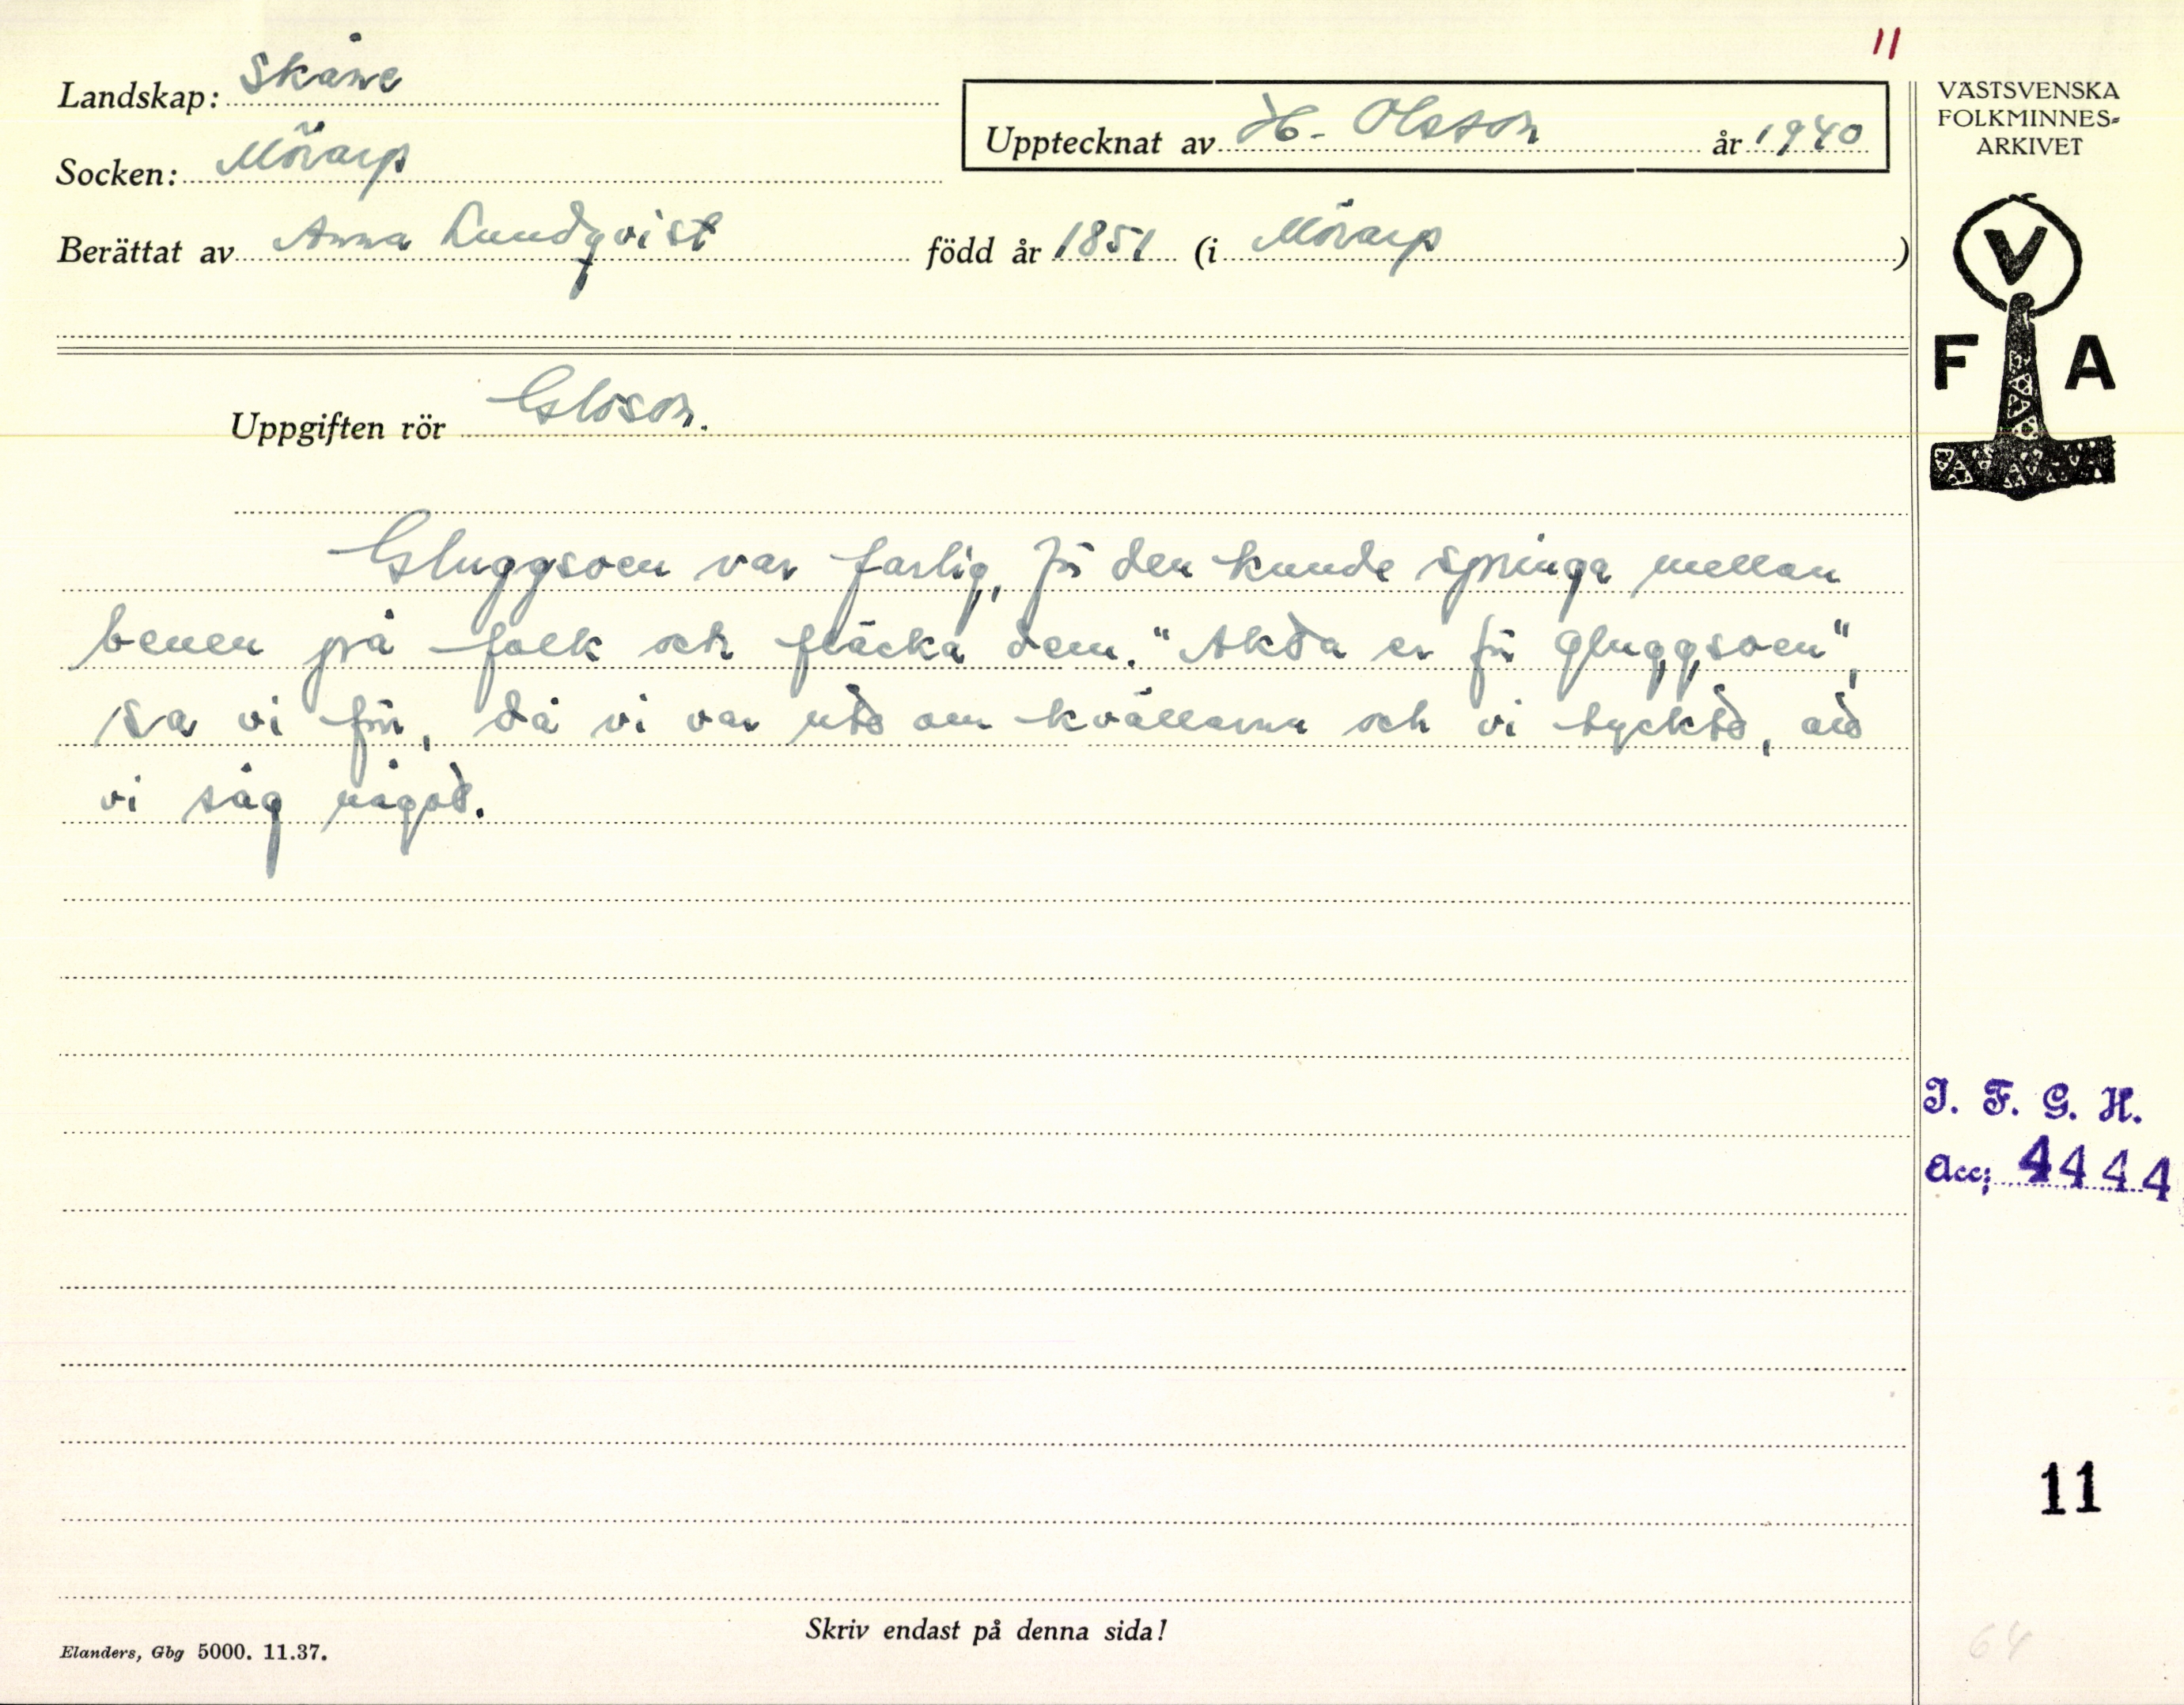 11
Landskap: Skåne
Socken: Mörarp
Upptecknat av H. Olsson år 1940
Berättat av Anna Lundqvist född år 1851 (i Mörarp)
VÄSTSVENSKA
FOLKMINNES-
ARKIVET
V
F A
Uppgiften rör Gloson.
Gluggsoen var farlig, för den kunde springa mellan
benen på folk och fläcka dem. "Akta er för gluggsoen",
sa vi förr, då vi var ute om kvällarna och vi tyckte, att
vi såg något.
I. F. G. H.
Acc; 4444
11
Skriv endast på denna sida!
Elanders, Gbg 5000. 11.37.
64